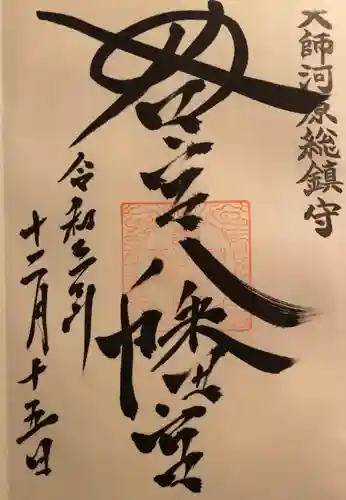 大師河原総鎮守
若宮八幡宮
令和二年
十二月十五日